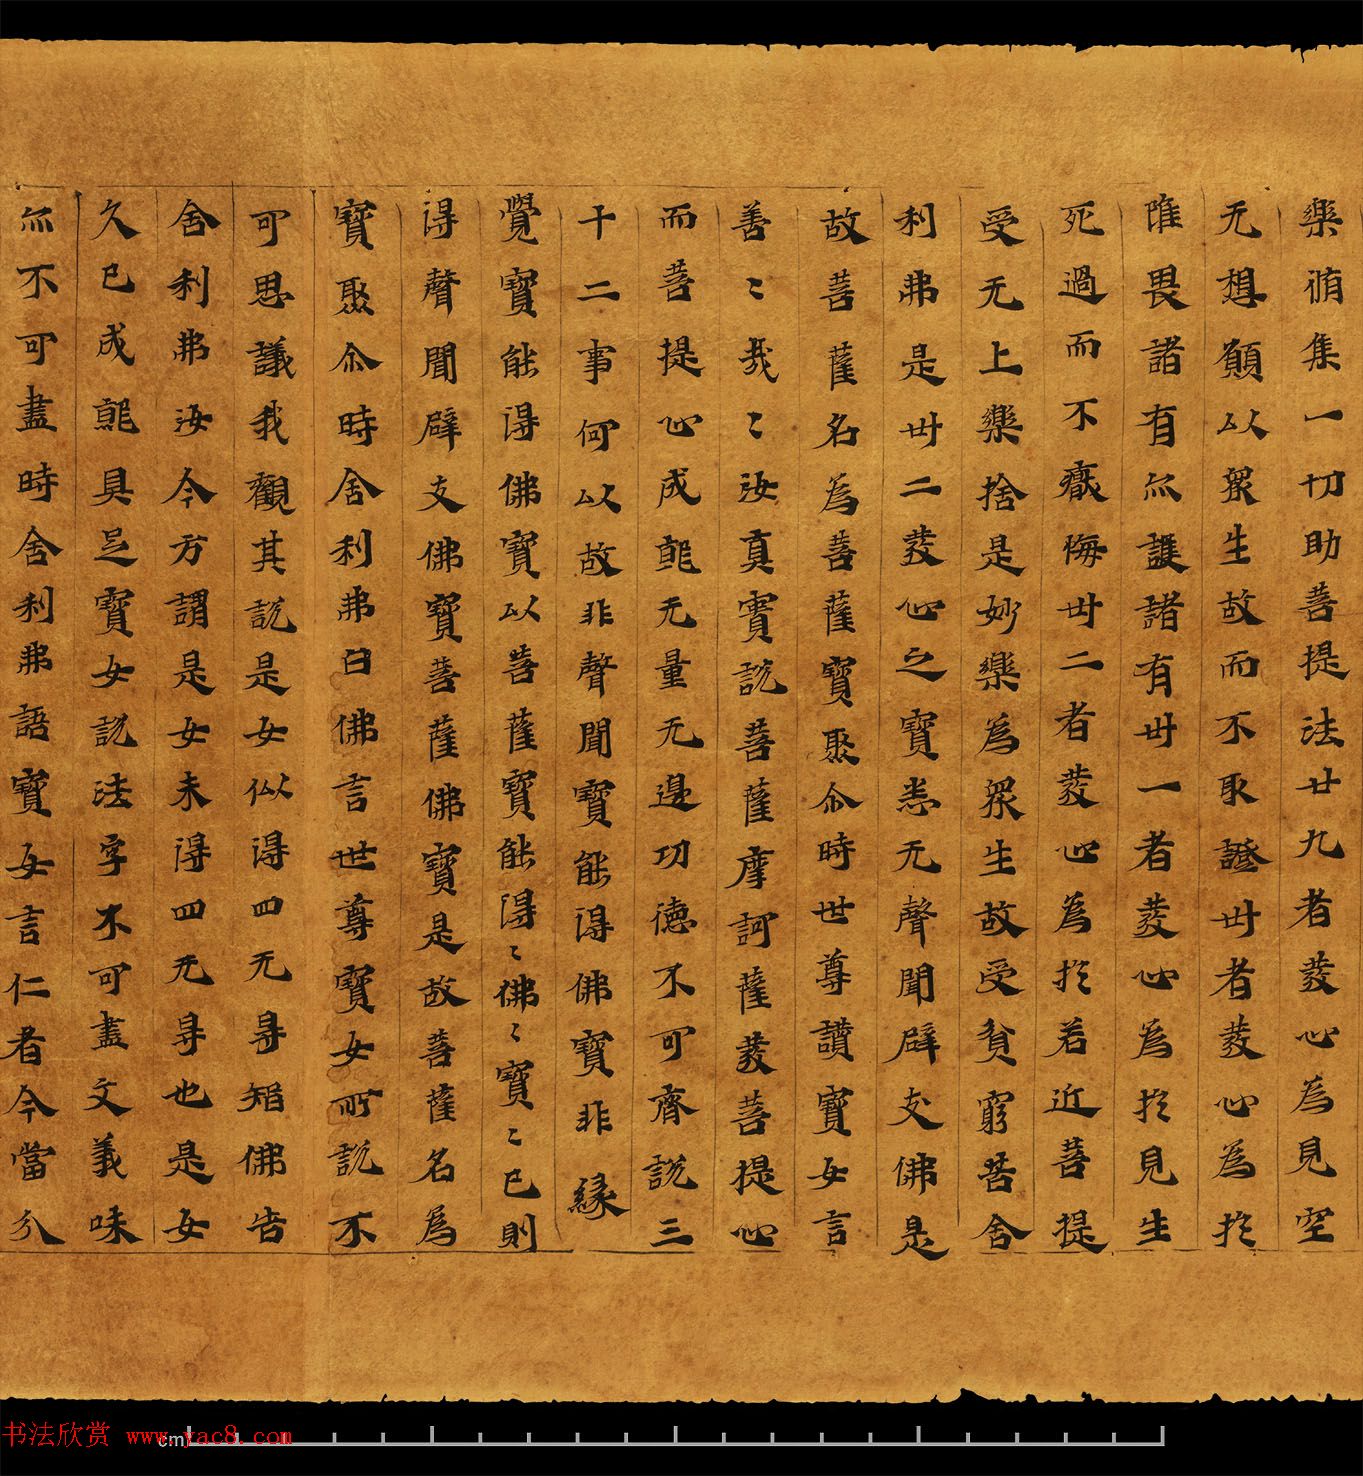 樂脩集一切助菩提法廿九者發心為見空
无想願以眾生故而不取證卅者發心為於
惟畏諸有亦護諸有卅一者發心為於見生
死過而不癈悔卅二者發心為於若近菩提
受无上樂捨是妙樂為眾生故受貧窮苦舍
利弗是卅二發心之寶悉无聲聞辟支佛是
故菩薩名為菩薩寶聚尒時世尊讚寶女言
善〻哉〻汝真實說菩薩摩訶薩發菩提心
而菩提心成就无量无邊功德不可齊說三
十二事何以故非聲聞寶能得佛寶非緣
覺寶能得佛寶以菩薩寶能得〻佛〻寶〻已則
得聲聞辟支佛寶菩薩佛寶是故菩薩名為
寶聚尒時舍利弗白佛言世尊寶女所說不
可思議我觀其說是女似得四无㝵智佛告
舍利弗汝今方謂是女未得四无㝵也是女
久已成就具足寶女說法字不可盡文義味
亦不可盡時舍利弗語寶女言仁者今當分
书法欣赏 www.yac8.com
cm